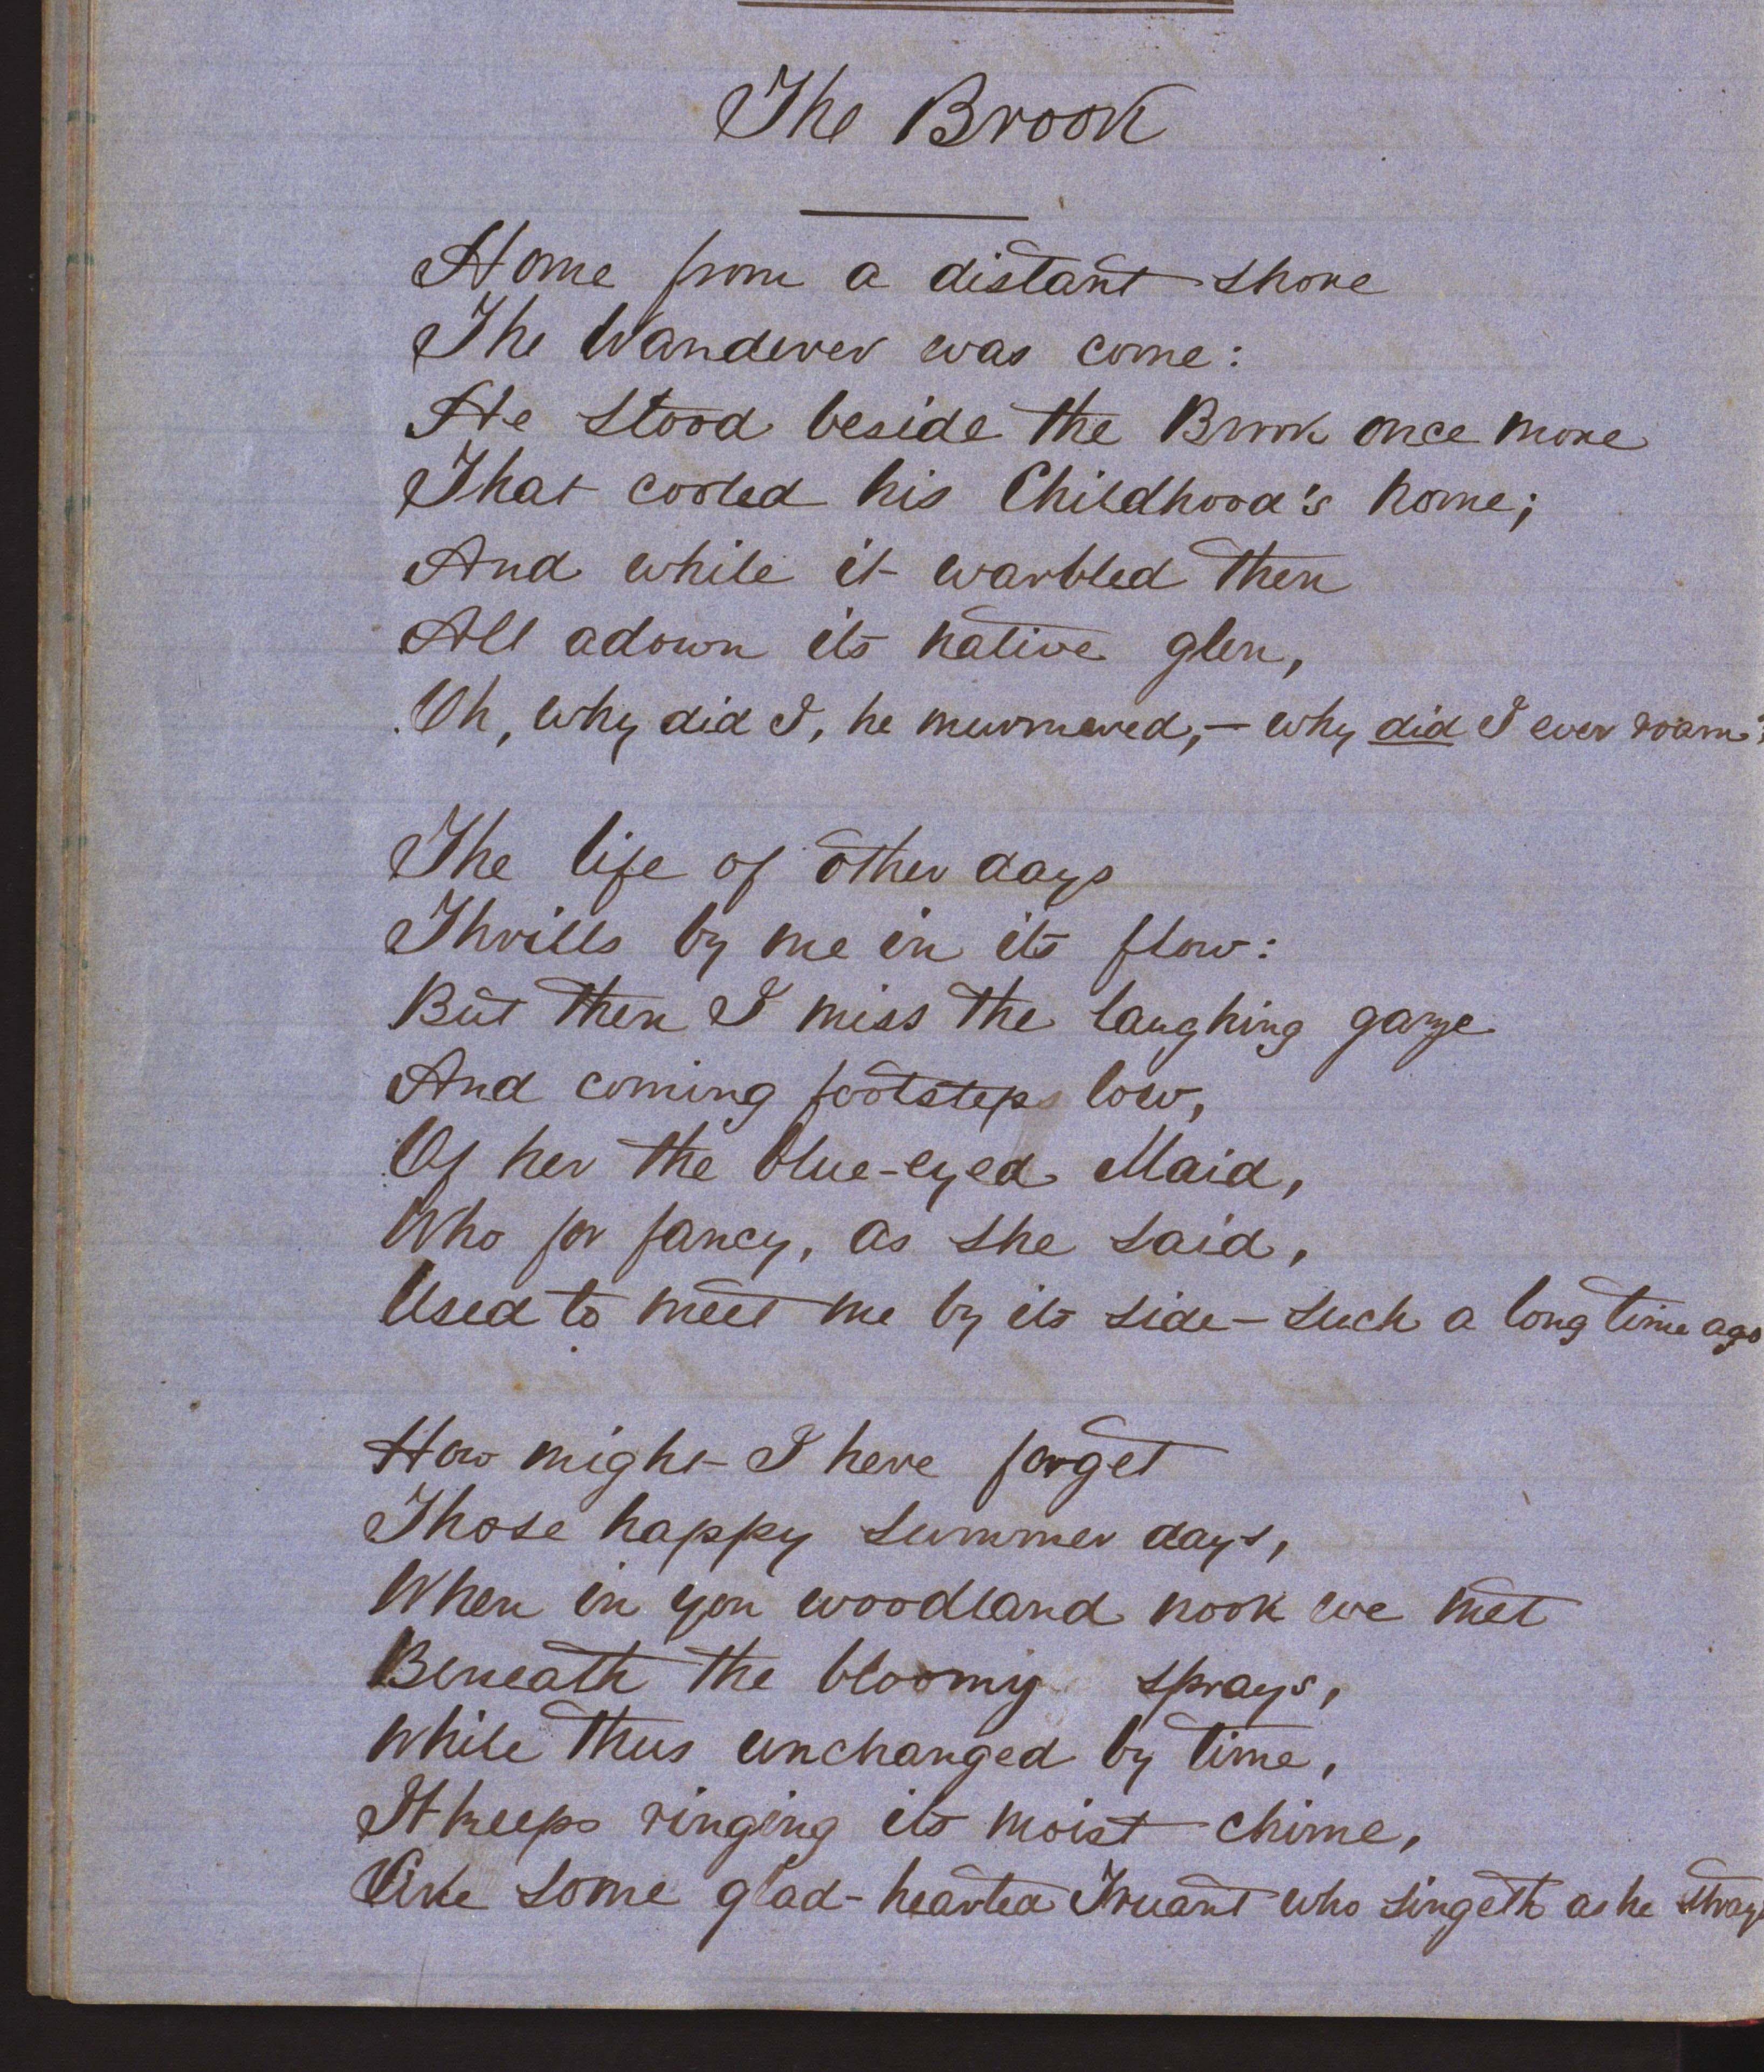 The Brook
Home from a distant shore
The Wanderer was come:
He stood beside the Brook once more
That cooled his Childhood's home;
And while it warbled then
All adown its native glen,
Oh, why did I, he murmured,— why did I ever roam?
The life of other days
Thrills by me in its flow:
But then I miss the laughing gaze
And coming footsteps low,
Of her the blue-eyed Maid,
Who for fancy, as she said,
Used to meet me by its side — such a long time ago
How might I here forget
Those happy summer days,
When in yon woodland nook we met
Beneath the bloomy sprays,
While thus unchanged by time,
It keeps ringing its moist chime,
Like some glad-hearted Truant who singeth as he strays